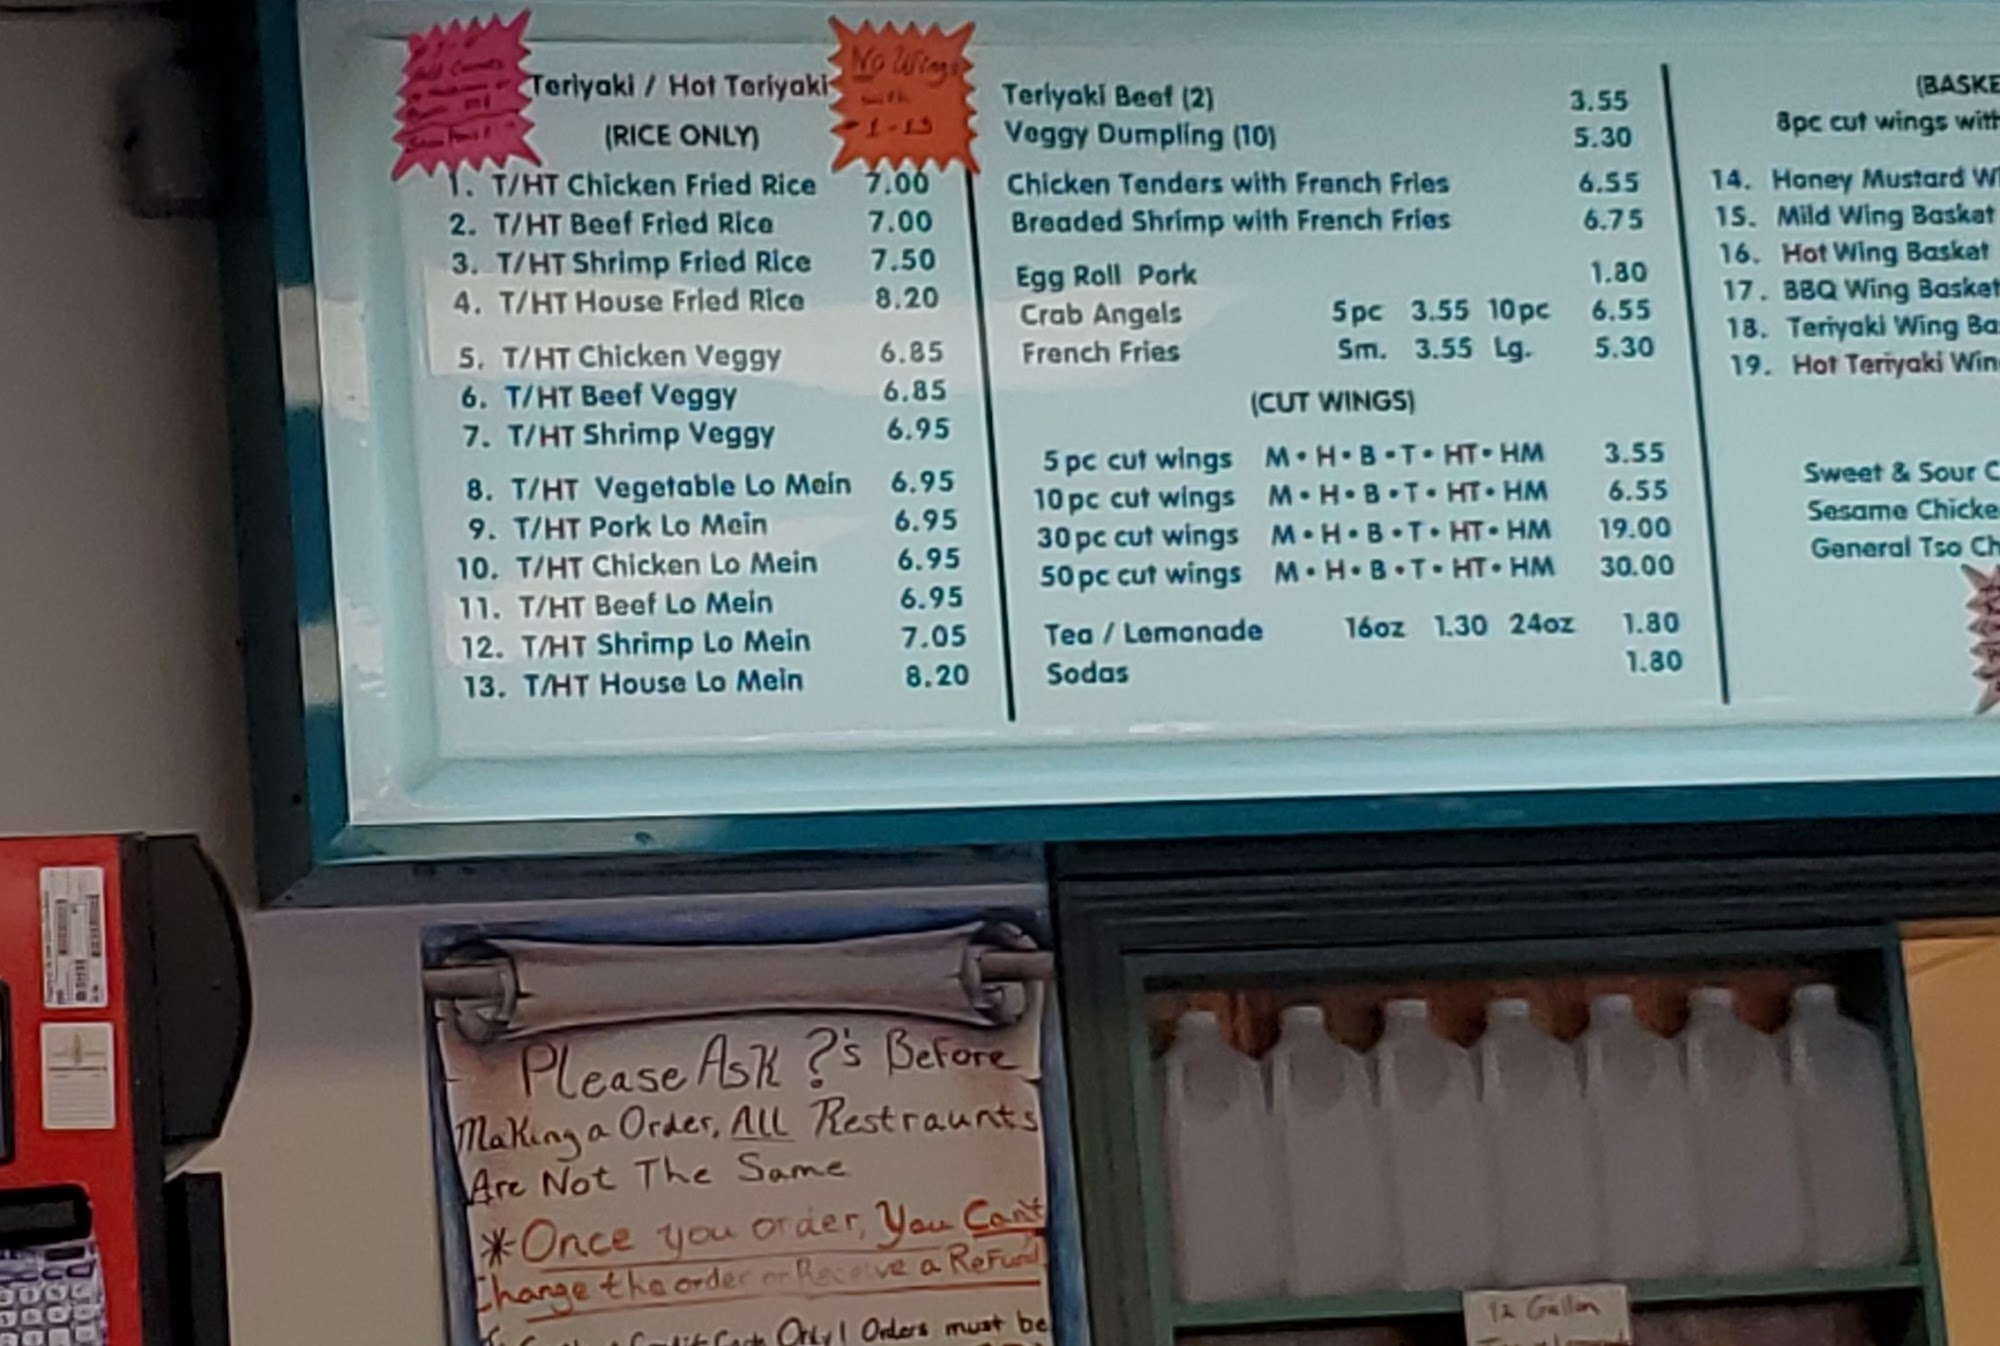 Teriyaki / Hot Teriyaki
(RICE ONLY)
No Wings
with
1-13
1. T/HT Chicken Fried Rice 7.00
2. T/HT Beef Fried Rice 7.00
3. T/HT Shrimp Fried Rice 7.50
4. T/HT House Fried Rice 8.20
5. T/HT Chicken Veggy 6.85
6. T/HT Beef Veggy 6.85
7. T/HT Shrimp Veggy 6.95
8. T/HT Vegetable Lo Mein 6.95
9. T/HT Pork Lo Mein 6.95
10. T/HT Chicken Lo Mein 6.95
11. T/HT Beef Lo Mein 6.95
12. T/HT Shrimp Lo Mein 7.05
13. T/HT House Lo Mein 8.20
Teriyaki Beef (2) 3.55
Veggy Dumpling (10) 5.30
Chicken Tenders with French Fries 6.55
Breaded Shrimp with French Fries 6.75
Egg Roll Pork 1.80
Crab Angels 5pc 3.55 10pc 6.55
French Fries Sm. 3.55 Lg. 5.30
(CUT WINGS)
5pc cut wings M • H • B • T • HT • HM 3.55
10pc cut wings M • H • B • T • HT • HM 6.55
30pc cut wings M • H • B • T • HT • HM 19.00
50pc cut wings M • H • B • T • HT • HM 30.00
Tea / Lemonade 16oz 1.30 24oz 1.80
Sodas 1.80
(BASKE
8pc cut wings with
14. Honey Mustard Wi
15. Mild Wing Basket
16. Hot Wing Basket
17. BBQ Wing Basket
18. Teriyaki Wing Ba
19. Hot Teriyaki Win
Sweet & Sour C
Sesame Chicke
General Tso Ch
Please Ask ?'s Before
Making a Order, ALL Restraunts
Are Not The Same
*Once you order, You Can't
Change the order or Receive a Refund
Only! Orders must be
1/2 Gallon